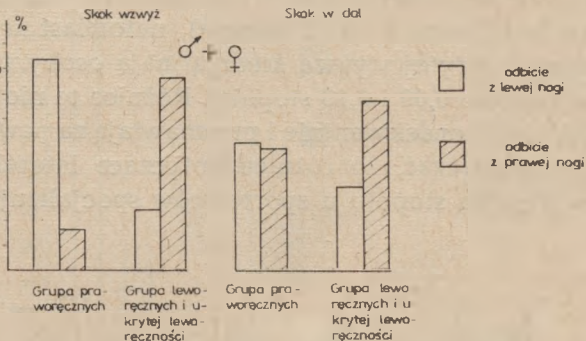 Skok wzwyż
Skok w dal
%
♂ + ♀
odbicie
z lewej nogi
odbicie
z prawej nogi
Grupa pra-
woręcznych
Grupa lewo-
ręcznych i u-
krytej lewo-
ręczności
Grupa pra-
woręcznych
Grupa lewo
ręcznych i u
krytej lewo-
ręczności